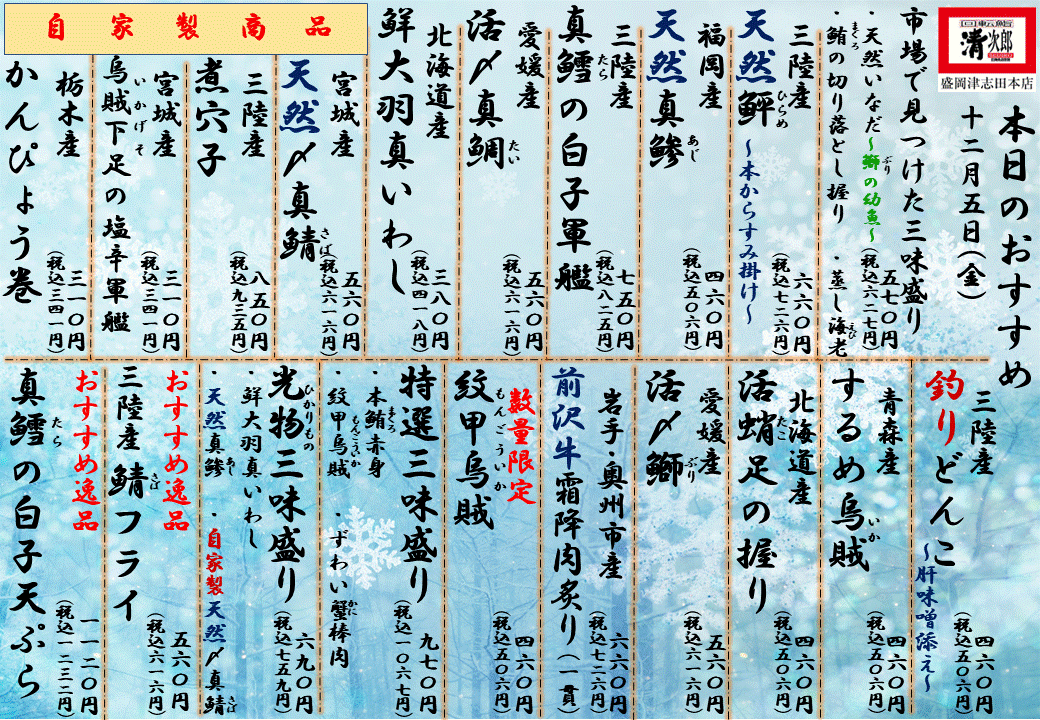 回転鮨
清次郎
盛岡津志田本店
本日のおすすめ
十二月五日(金)
市場で見つけた三味盛り
・天然いなだ～鰤の幼魚～
ぶり
・鮪の切り落とし握り
まぐろ
・蒸し海老
えび
五七〇円
(税込六二七円)
三陸産
天然鮃
ひらめ
～本からすみ掛け～
六六〇円
(税込七二六円)
福岡産
天然真鯵
あじ
四六〇円
(税込五〇六円)
三陸産
真鱈の白子軍艦
たら
七五〇円
(税込八二五円)
愛媛産
活〆真鯛
たい
五六〇円
(税込六一六円)
北海道産
鮮大羽真いわし
三八〇円
(税込四一八円)
自家製商品
宮城産
天然〆真鯖
さば
五六〇円
(税込六一六円)
三陸産
煮穴子
八五〇円
(税込九三五円)
宮城産
烏賊下足の塩辛軍艦
いかげそ
三一〇円
(税込三四一円)
栃木産
かんぴょう巻
三一〇円
(税込三四一円)
三陸産
釣りどんこ
～肝味噌添え～
四六〇円
(税込五〇六円)
青森産
するめ烏賊
いか
四六〇円
(税込五〇六円)
北海道産
活蛸足の握り
たこ
四六〇円
(税込五〇六円)
愛媛産
活〆鰤
ぶり
五六〇円
(税込六一六円)
岩手・奥州市産
前沢牛霜降肉炙り(一貫)
六六〇円
(税込七二六円)
数量限定
紋甲烏賊
もんごういか
四六〇円
(税込五〇六円)
特選三味盛り
・本鮪赤身
まぐろ
・紋甲烏賊
もんごういか
・ずわい蟹棒肉
かに
九七〇円
(税込一〇六七円)
光物三味盛り
ひかりもの
・鮮大羽真いわし
・天然真鯵
あじ
・自家製天然〆真鯖
さば
六九〇円
(税込七五九円)
おすすめ逸品
三陸産 鯖フライ
さば
五六〇円
(税込六一六円)
おすすめ逸品
真鱈の白子天ぷら
たら
一一二〇円
(税込一二三二円)